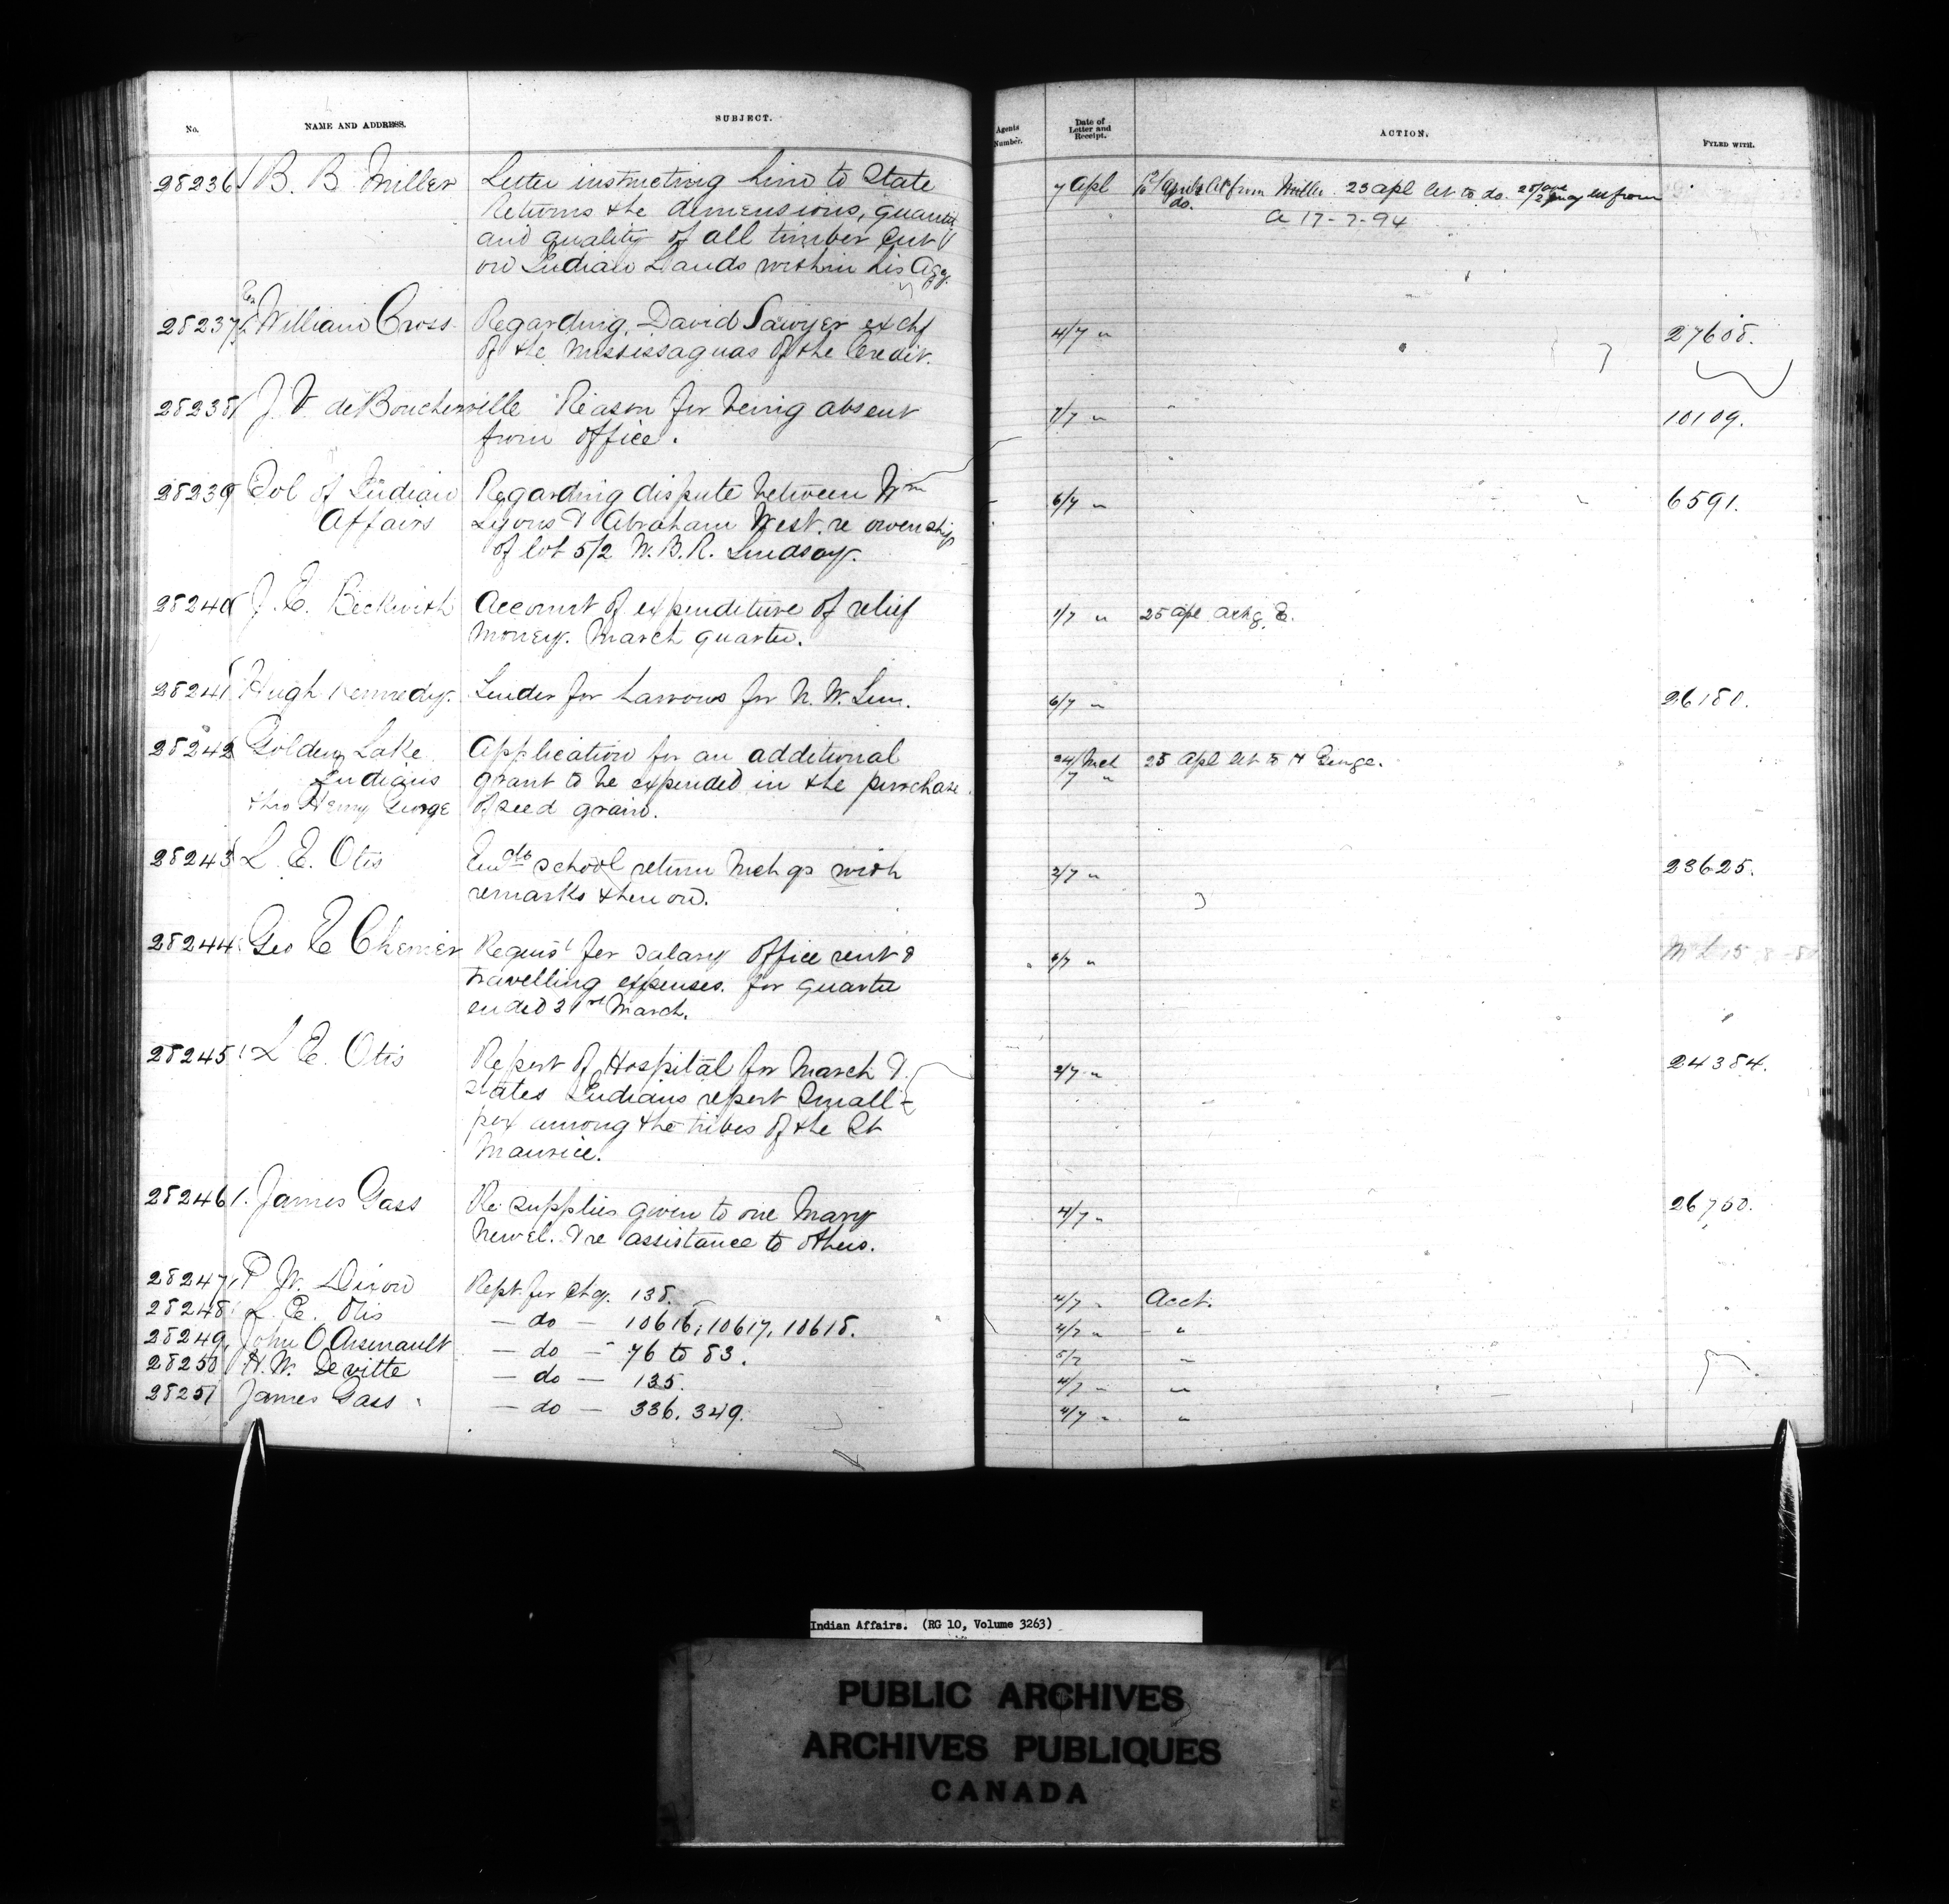 No. NAME AND ADDRESS. SUBJECT. Agents Number. Date of Letter and Receipt. ACTION. FYLED WITH.
28236 B. B Miller Letter instructing him to State 7 Apl from Miller. 23 apl let to do.
returns the dimensions, quantity A 17-7-94
and quality of all timber cut
on Indian Lands within his Agy.
28237 Rev William Cross Regarding David Sawyer ex chf 4/7 " 27608.
of the Mississaguas of the Credit.
28238 J. V. deBoucherville Reason for being absent 7/7 " 10109.
from office.
28239 Col of Indian Regarding dispute between Wm 6/7 " 6591.
Affairs Lyons & Abraham West. re owership
of lot 5/2 W.B.R. Lindsay.
28240 J. E. Beckwith Account of expenditure of relief 1/7 " 25 Apl ackg. E.
money. March quarter.
28241 Hugh Kennedy. Tender for harrows for N. W. Sum. 6/7 " 26180.
28242 Golden Lake Application for an additional 24/Mch 25 Apl let to H George.
Indians grant to be expended in the purchase 7 "
thro Henry George of seed grain.
28243 L. E. Otis school return Mch qr with 2/7 " 23625.
remarks thereon.
28244 Geo E Cherrier Requist for salary office rent & 6/7 "
travelling expenses. for quarter
ended 31st March.
28245 L E. Otis Report of Hospital for March & 2/7 " 24384.
states Indians report Small-
pox among the tribes of the St
Maurice.
28246 James Gass Re supplies given to one Mary 4/7 " 26760.
Newel. & re assistance to others.
28247 P W. Dixon Rept. for chq. 138. 4/7 " Acct.
28248 L. E. Otis — do — 10616, 10617, 10618. 4/7 " "
28249 John O Arsenault — do — 76 to 83. 5/7 "
28250 H. W. Devitte — do — 135. 4/7 " "
28251 James Gass — do — 336. 349. 4/7 " "
Indian Affairs. (RG 10, Volume 3263)
PUBLIC ARCHIVES
ARCHIVES PUBLIQUES
CANADA